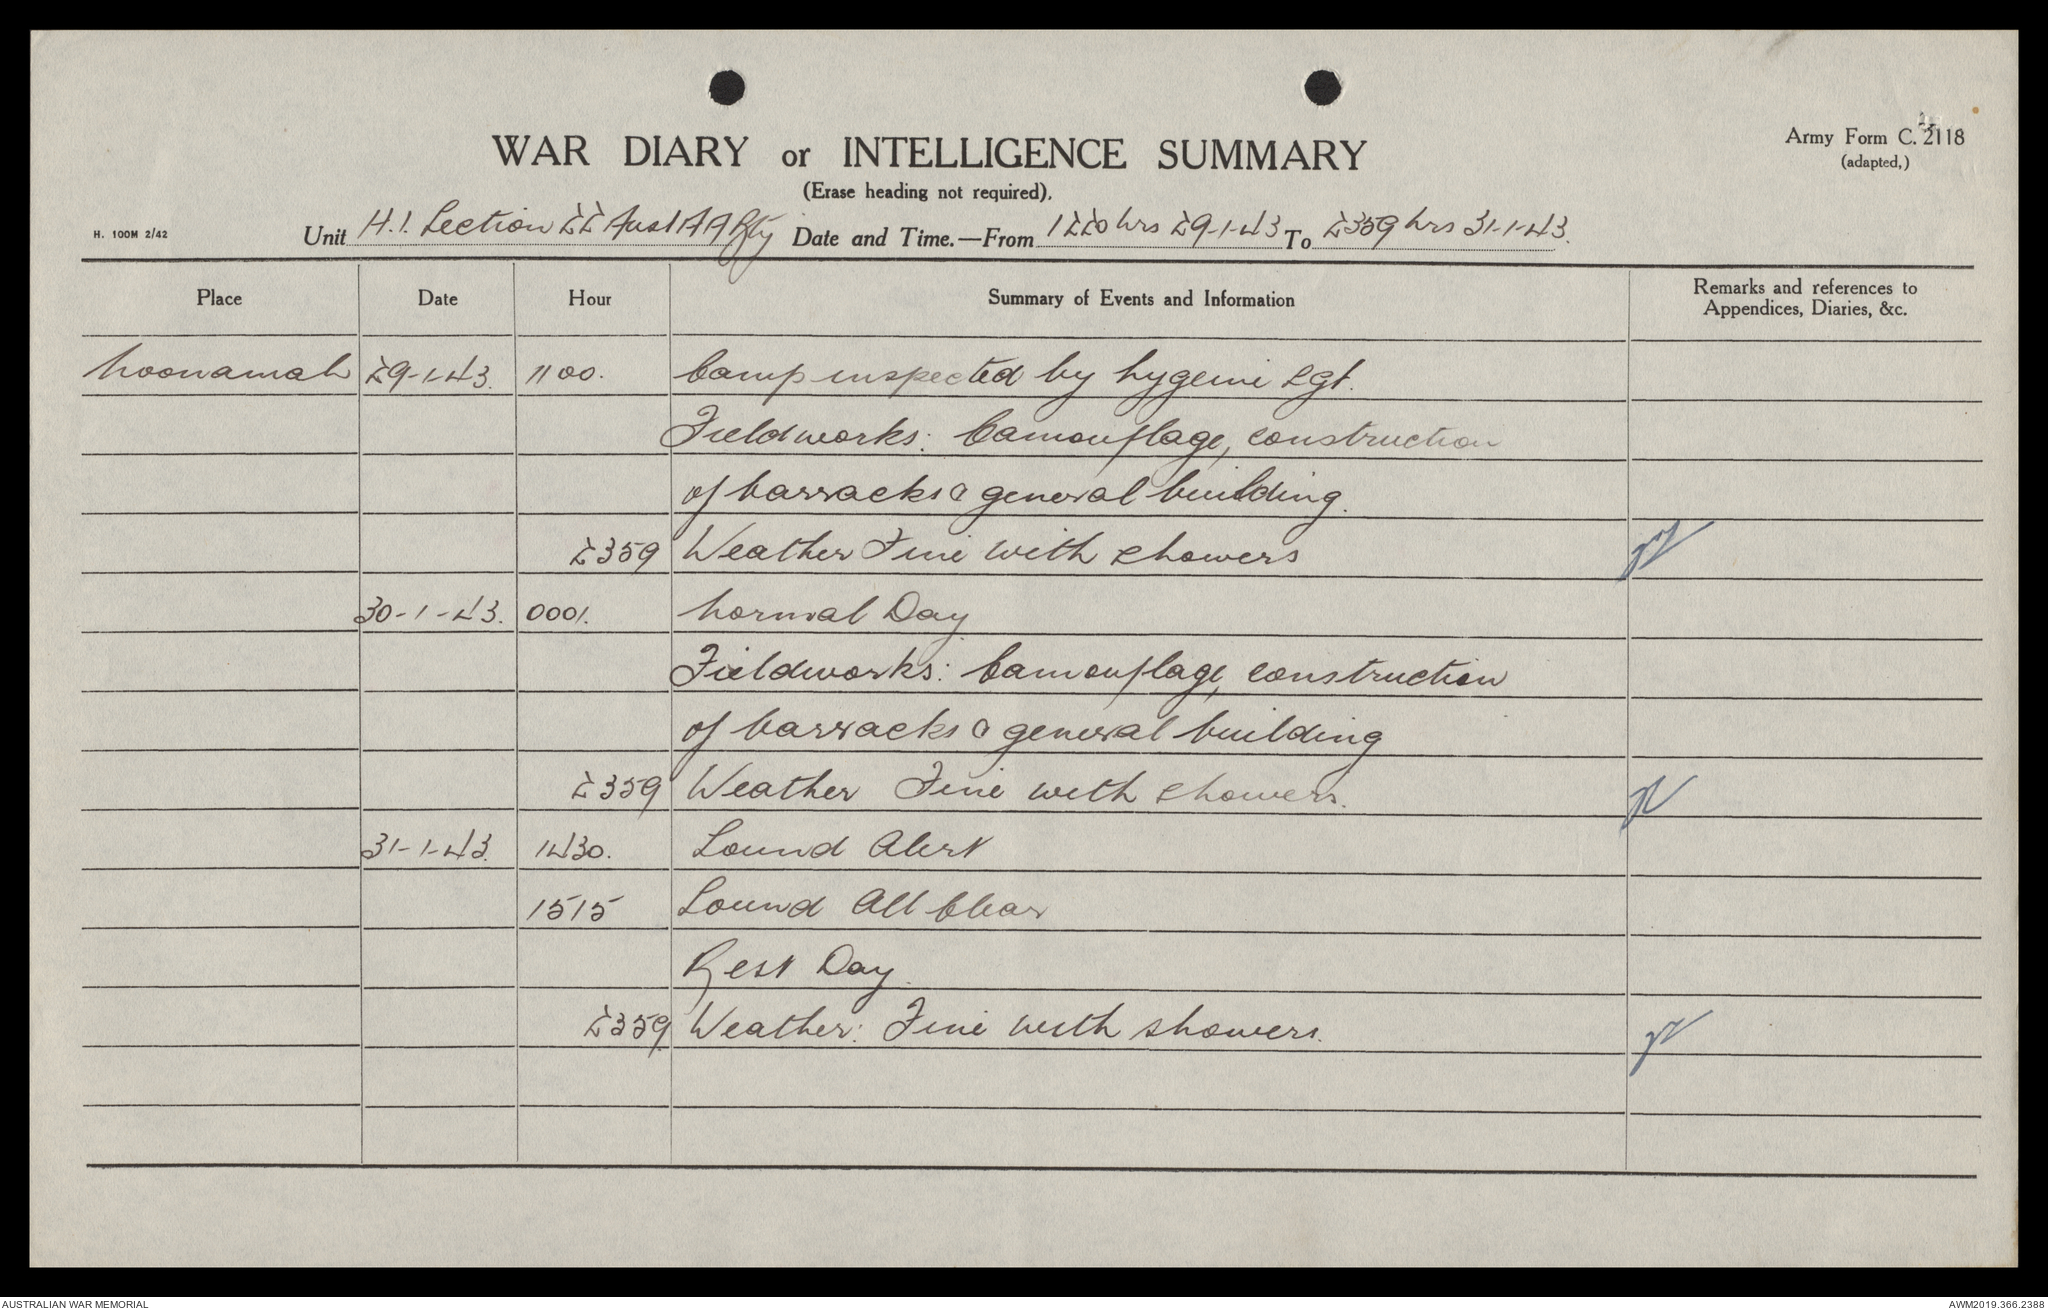 Army Form C. 2118
(adapted,)
WAR DIARY or INTELLIGENCE SUMMARY
(Erase heading not required).
H. 100M 2/42
Unit H.1. Section 22 Aust A A Bty Date and Time.—From 1220 hrs 29-1-43 To 2359 hrs 31-1-43.
Place Date Hour Summary of Events and Information Remarks and references to
Appendices, Diaries, &c.
Noonamah 29-1-43. 1100. Camp inspected by hygeine Sgt.
Fieldworks: Camouflage, construction
of barracks & general building.
2359 Weather Fine with showers
30-1-43. 0001. Normal Day
Fieldworks: Camouflage, construction
of barracks & general building
2359 Weather Fine with showers.
31-1-43. 1430. Sound Alert
1515 Sound All Clear
Rest Day.
2359 Weather: Fine with showers.
AUSTRALIAN WAR MEMORIAL AWM2019.366.2388